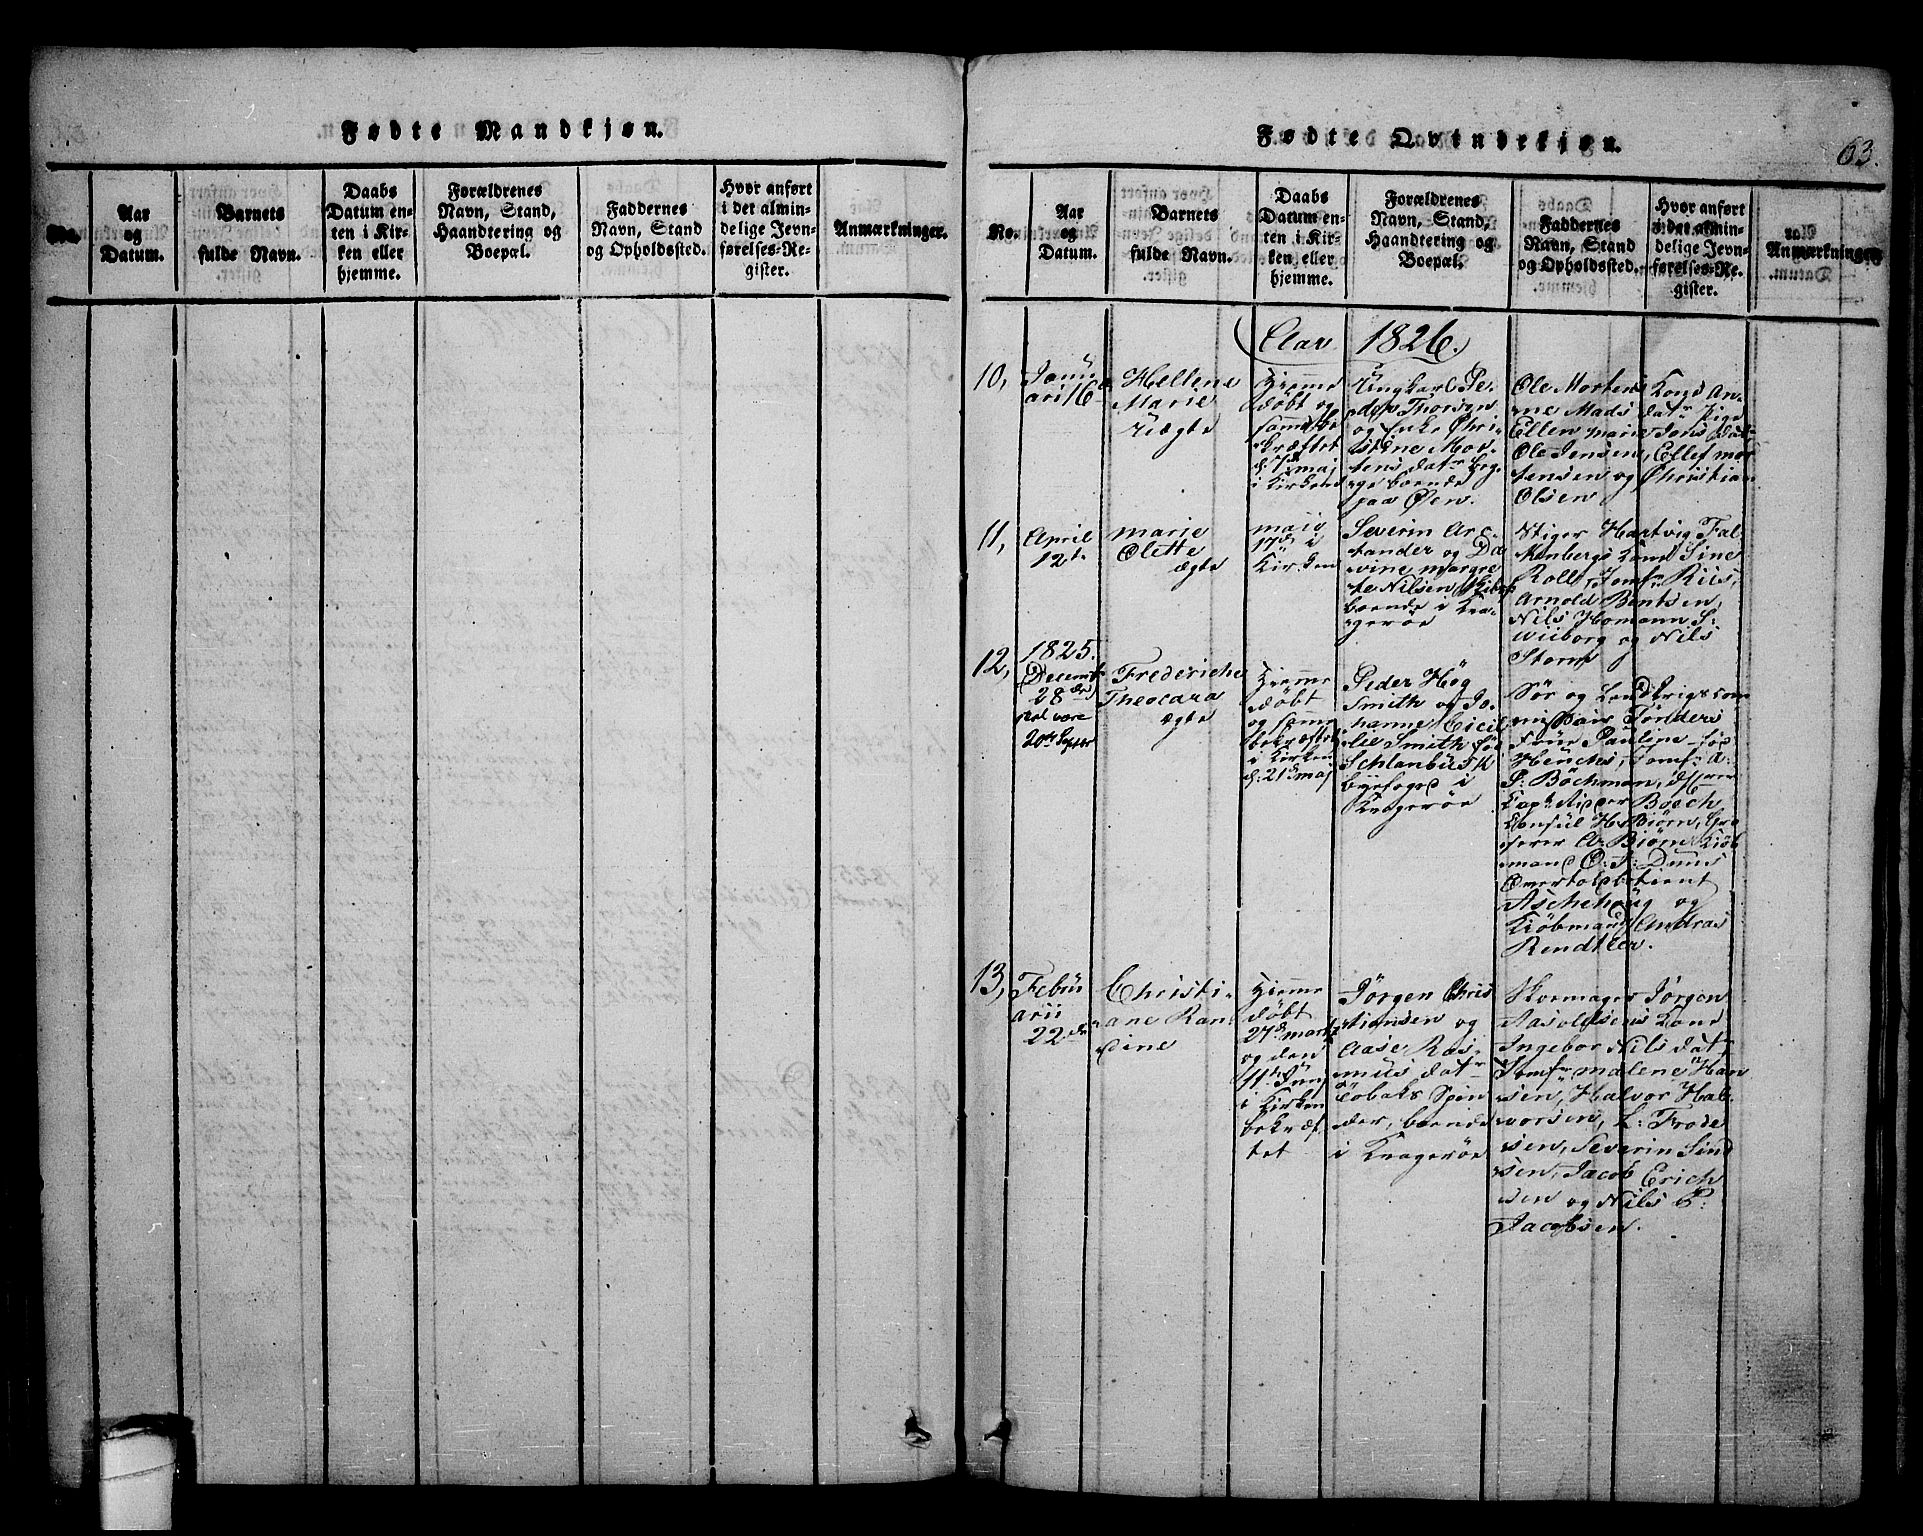 Fødte Mandkjøn.
No.
Aar
og
Datum.
Barnets
fulde Navn.
Daabs
Datum en-
ten i Kir-
ken eller
hjemme.
Forældrenes
Navn, Stand,
Haandtering og
Boepæl.
Faddernes
Navn, Stand
og Opholdssted.
Hvor anført
i det almin-
delige Jevn-
førelses-Re-
gister.
Anmærkninger.
Fødte Qvindekjøn.
63.
No.
Aar
og
Datum.
Barnets
fulde Navn.
Daabs
Datum en-
ten i Kir-
ken eller
hjemme.
Forældrenes
Navn, Stand,
Haandtering og
Boepæl.
Faddernes
Navn, Stand
og Opholdssted.
Hvor anført
i det almin-
delige Jevn-
førelses-Re-
gister.
Anmærkninger
Aar 1826.
10,
Janu
ari 16
Hellene
Marie
Uægte
Hjemme
døbt og
bekræftet
i Kirken
Ungkarl Pe-
der Thorsen
og Enke Chri-
stine Mor-
tens datr
boende
paa Øen.
Ole Mortens Kone An-
ne Mads datr Pige
Ellen Marie Jens dat
Ole Jensen, Ellef Mor
tensen og Christian
Olsen
11,
April
12te
Marie
Olette
ægte
Maio
17de i
Kirken
Severin Arc-
tander og Da
vine Margre
te Nilsen
boende i Kra-
gerøe
Stiger Hartvig Fal
kenbergs Kone Sine
Roll, Jomfr Riis,
Arnold Bentsen,
Nils Homann S:
Wiiborg og Nils
Storm
12,
1825.
Decemb
28de
skal være
20de Septbr
Frederiche
Theocara
ægte
Hjemme
døbt
og
bekræftet
i Kirken
d: 21de Maj
Peder Høg
Smith og Jo-
hanne Cicil
lie Smith fød
Schlanbusk
byefoged i
Kragerøe
Sør og Lendrigscom
missair Tønders
Frue Pauline fød
Henchel, Jomfr A:
P: Bøchman,
Capt: Boech
Consul H: Biørn,
A: Biørn Kiøb
mand O: F: Duus
Overtoldbetient
Aschehoug og
Kiøbmand Andreas
Rendtler.
13,
Febru
arii
22de
Christi-
ane Ran-
dine
Hjemme
døbt
27de Marts
og den
11te Junj
i Kirken
bekræf
tet
Jørgen Chris
tiansen og
Aase Ras-
mus datr
Tobaks Spin
der, boende
i Kragerøe
Skomager Jørgen
Aasoldsens Kone
Ingebor Nils dat
Jomfr Malene Han
sen, Halvor Hal-
vorsen, L: Frode
sen, Severin Sind
sen, Jacob Erich
sen og Nils P:
Jacobsen.